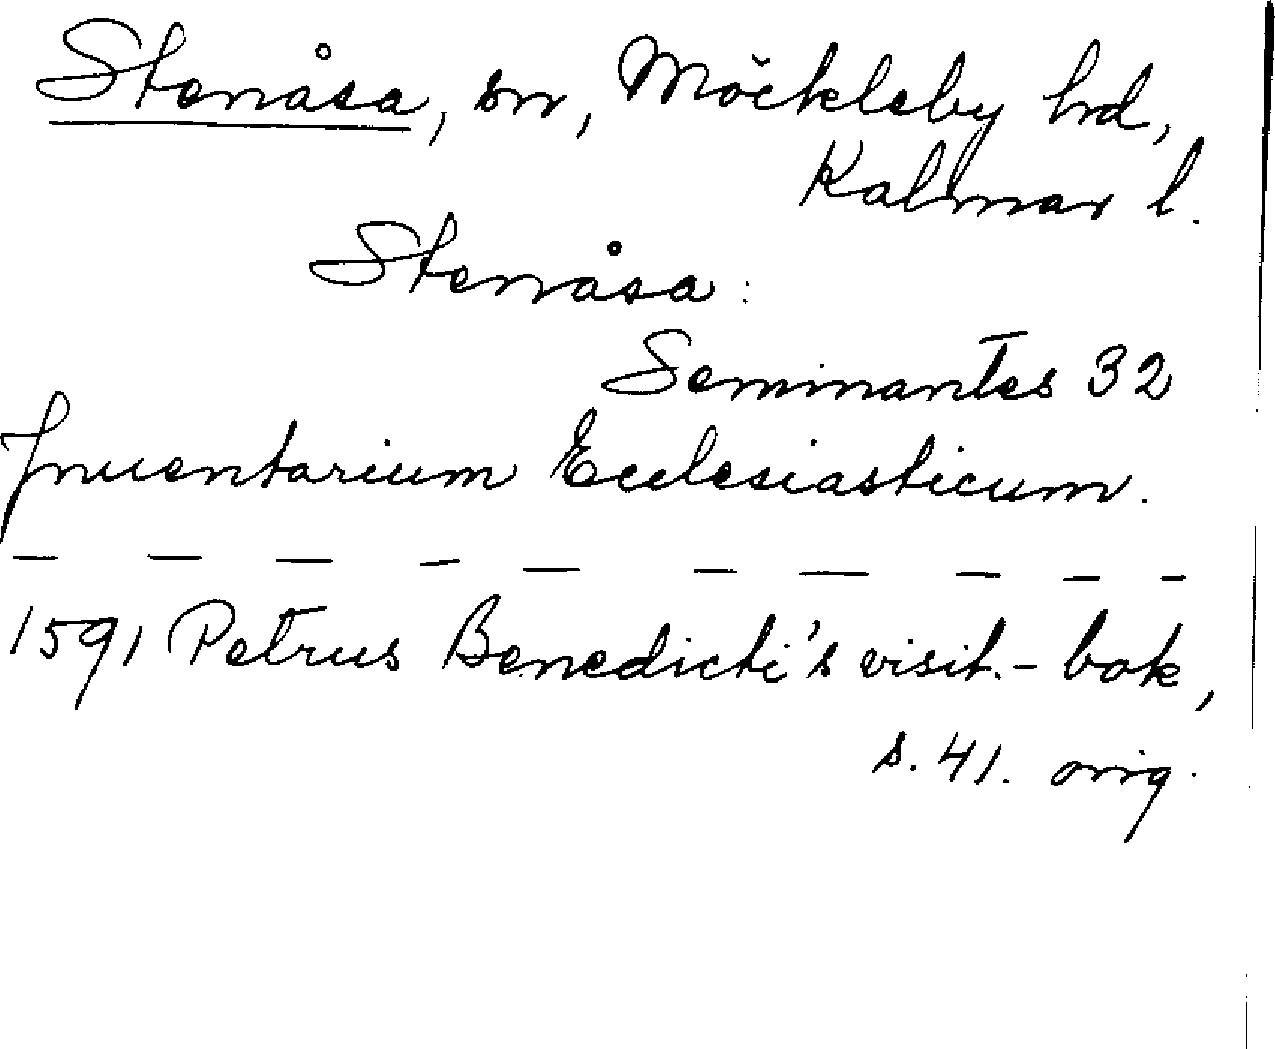 Stenåsa, sn, Möckleby hrd,
Kalmar l.
Stenåsa:
Seminantes 32
Inuentarium Ecclesiasticum.
— — — — — — — — — —
1591 Petrus Benedicti's visit.-bok,
s. 41. orig.